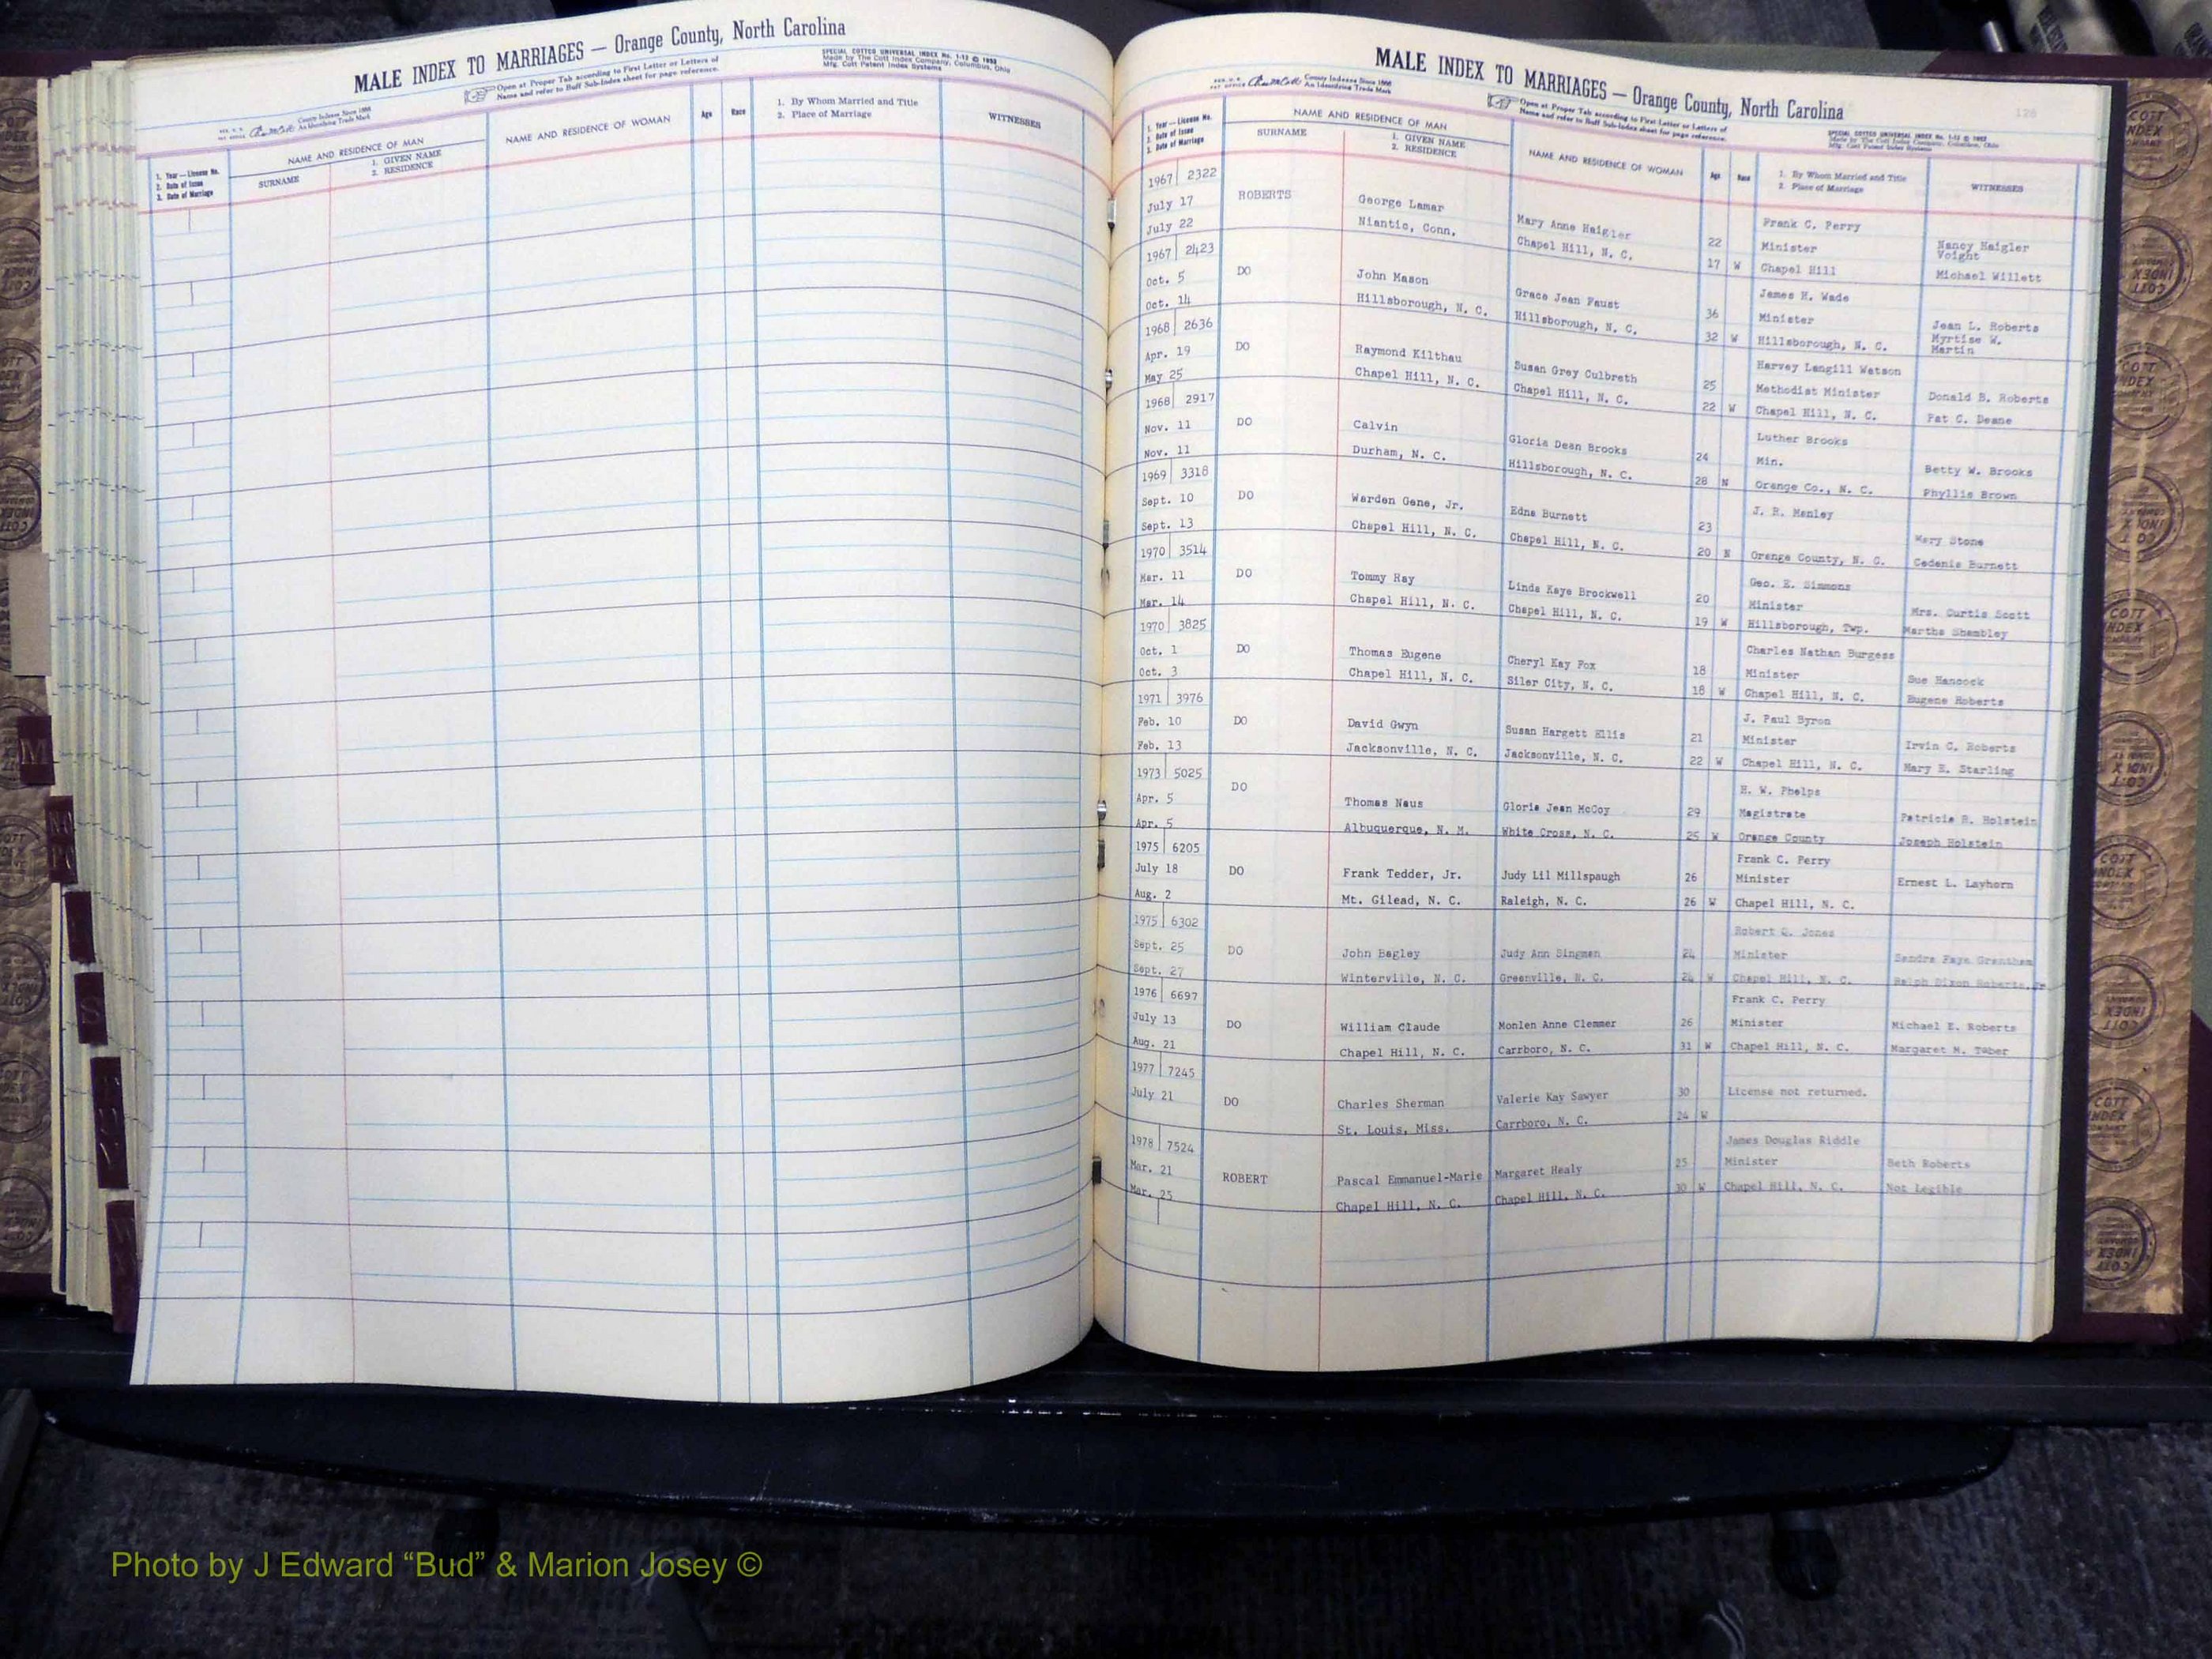 MALE INDEX TO MARRIAGES — Orange County, North Carolina
Open at Proper Tab according to First Letter or Letters of
Name and refer to Buff Sub-Index sheet for page reference.
SPECIAL COTTCO UNIVERSAL INDEX No. 1-12 © 1952
Made by The Cott Index Company, Columbus, Ohio
Mfg. Cott Patent Index Systems
County Indexes Since 1888
An Identifying Trade Mark
1. Year — License No.
2. Date of Issue
3. Date of Marriage
NAME AND RESIDENCE OF MAN
SURNAME
1. GIVEN NAME
2. RESIDENCE
NAME AND RESIDENCE OF WOMAN
Age
Race
1. By Whom Married and Title
2. Place of Marriage
WITNESSES
MALE INDEX TO MARRIAGES — Orange County, North Carolina
126
Open at Proper Tab according to First Letter or Letters of
Name and refer to Buff Sub-Index sheet for page reference.
SPECIAL COTTCO UNIVERSAL INDEX No. 1-12 © 1952
Made by The Cott Index Company, Columbus, Ohio
Mfg. Cott Patent Index Systems
County Indexes Since 1888
An Identifying Trade Mark
1. Year — License No.
2. Date of Issue
3. Date of Marriage
NAME AND RESIDENCE OF MAN
SURNAME
1. GIVEN NAME
2. RESIDENCE
NAME AND RESIDENCE OF WOMAN
Age
Race
1. By Whom Married and Title
2. Place of Marriage
WITNESSES
1967 2322 Frank C. Perry
July 17 ROBERTS George Lamar Mary Anne Haigler 22 Minister Nancy Haigler Voight
July 22 Niantic, Conn. Chapel Hill, N. C. 17 W Chapel Hill Michael Willett
1967 2423 James H. Wade
Oct. 5 DO John Mason Grace Jean Faust 36 Minister Jean L. Roberts
Oct. 14 Hillsborough, N. C. Hillsborough, N. C. 32 W Hillsborough, N. C. Myrtise W. Martin
1968 2636 Harvey Langill Watson
Apr. 19 DO Raymond Kilthau Susan Grey Culbreth 25 Methodist Minister Donald B. Roberts
May 25 Chapel Hill, N. C. Chapel Hill, N. C. 22 W Chapel Hill, N. C. Pat C. Deane
1968 2917 Luther Brooks
Nov. 11 DO Calvin Gloria Dean Brooks 24 Min. Betty W. Brooks
Nov. 11 Durham, N. C. Hillsborough, N. C. 28 N Orange Co., N. C. Phyllis Brown
1969 3318 J. R. Manley
Sept. 10 DO Warden Gene, Jr. Edna Burnett 23 Mary Stone
Sept. 13 Chapel Hill, N. C. Chapel Hill, N. C. 20 N Orange County, N. C. Cedenia Burnett
1970 3514 Geo. E. Simmons
Mar. 11 DO Tommy Ray Linda Kaye Brockwell 20 Minister Mrs. Curtis Scott
Mar. 14 Chapel Hill, N. C. Chapel Hill, N. C. 19 W Hillsborough, Twp. Martha Shambley
1970 3825 Charles Nathan Burgess
Oct. 1 DO Thomas Eugene Cheryl Kay Fox 18 Minister Sue Hancock
Oct. 3 Chapel Hill, N. C. Siler City, N. C. 18 W Chapel Hill, N. C. Eugene Roberts
1971 3976 J. Paul Byron
Feb. 10 DO David Gwyn Susan Hargett Ellis 21 Minister Irvin C. Roberts
Feb. 13 Jacksonville, N. C. Jacksonville, N. C. 22 W Chapel Hill, N. C. Mary E. Starling
1973 5025 H. W. Phelps
Apr. 5 DO Thomas Naus Gloria Jean McCoy 29 Magistrate Patricia R. Holstein
Apr. 5 Albuquerque, N. M. White Cross, N. C. 25 W Orange County Joseph Holstein
1975 6205 Frank C. Perry
July 18 DO Frank Tedder, Jr. Judy Lil Millspaugh 26 Minister Ernest L. Layhorn
Aug. 2 Mt. Gilead, N. C. Raleigh, N. C. 26 W Chapel Hill, N. C.
1975 6302 Robert Q. Jones
Sept. 25 DO John Bagley Judy Ann Singman 24 Minister Sandra Faye Grantham
Sept. 27 Winterville, N. C. Greenville, N. C. 24 W Chapel Hill, N. C. Ralph Dixon Roberts, Jr
1976 6697 Frank C. Perry
July 13 DO William Claude Monlen Anne Clemmer 26 Minister Michael E. Roberts
Aug. 21 Chapel Hill, N. C. Carrboro, N. C. 31 W Chapel Hill, N. C. Margaret M. Taber
1977 7245
July 21 DO Charles Sherman Valerie Kay Sawyer 30 License not returned.
St. Louis, Miss. Carrboro, N. C. 24 W
1978 7524 James Douglas Riddle
Mar. 21 ROBERT Pascal Emmanuel-Marie Margaret Healy 25 Minister Beth Roberts
Mar. 25 Chapel Hill, N. C. Chapel Hill, N. C. 30 W Chapel Hill, N. C. Not Legible
M
S
Photo by J Edward “Bud” & Marion Josey ©